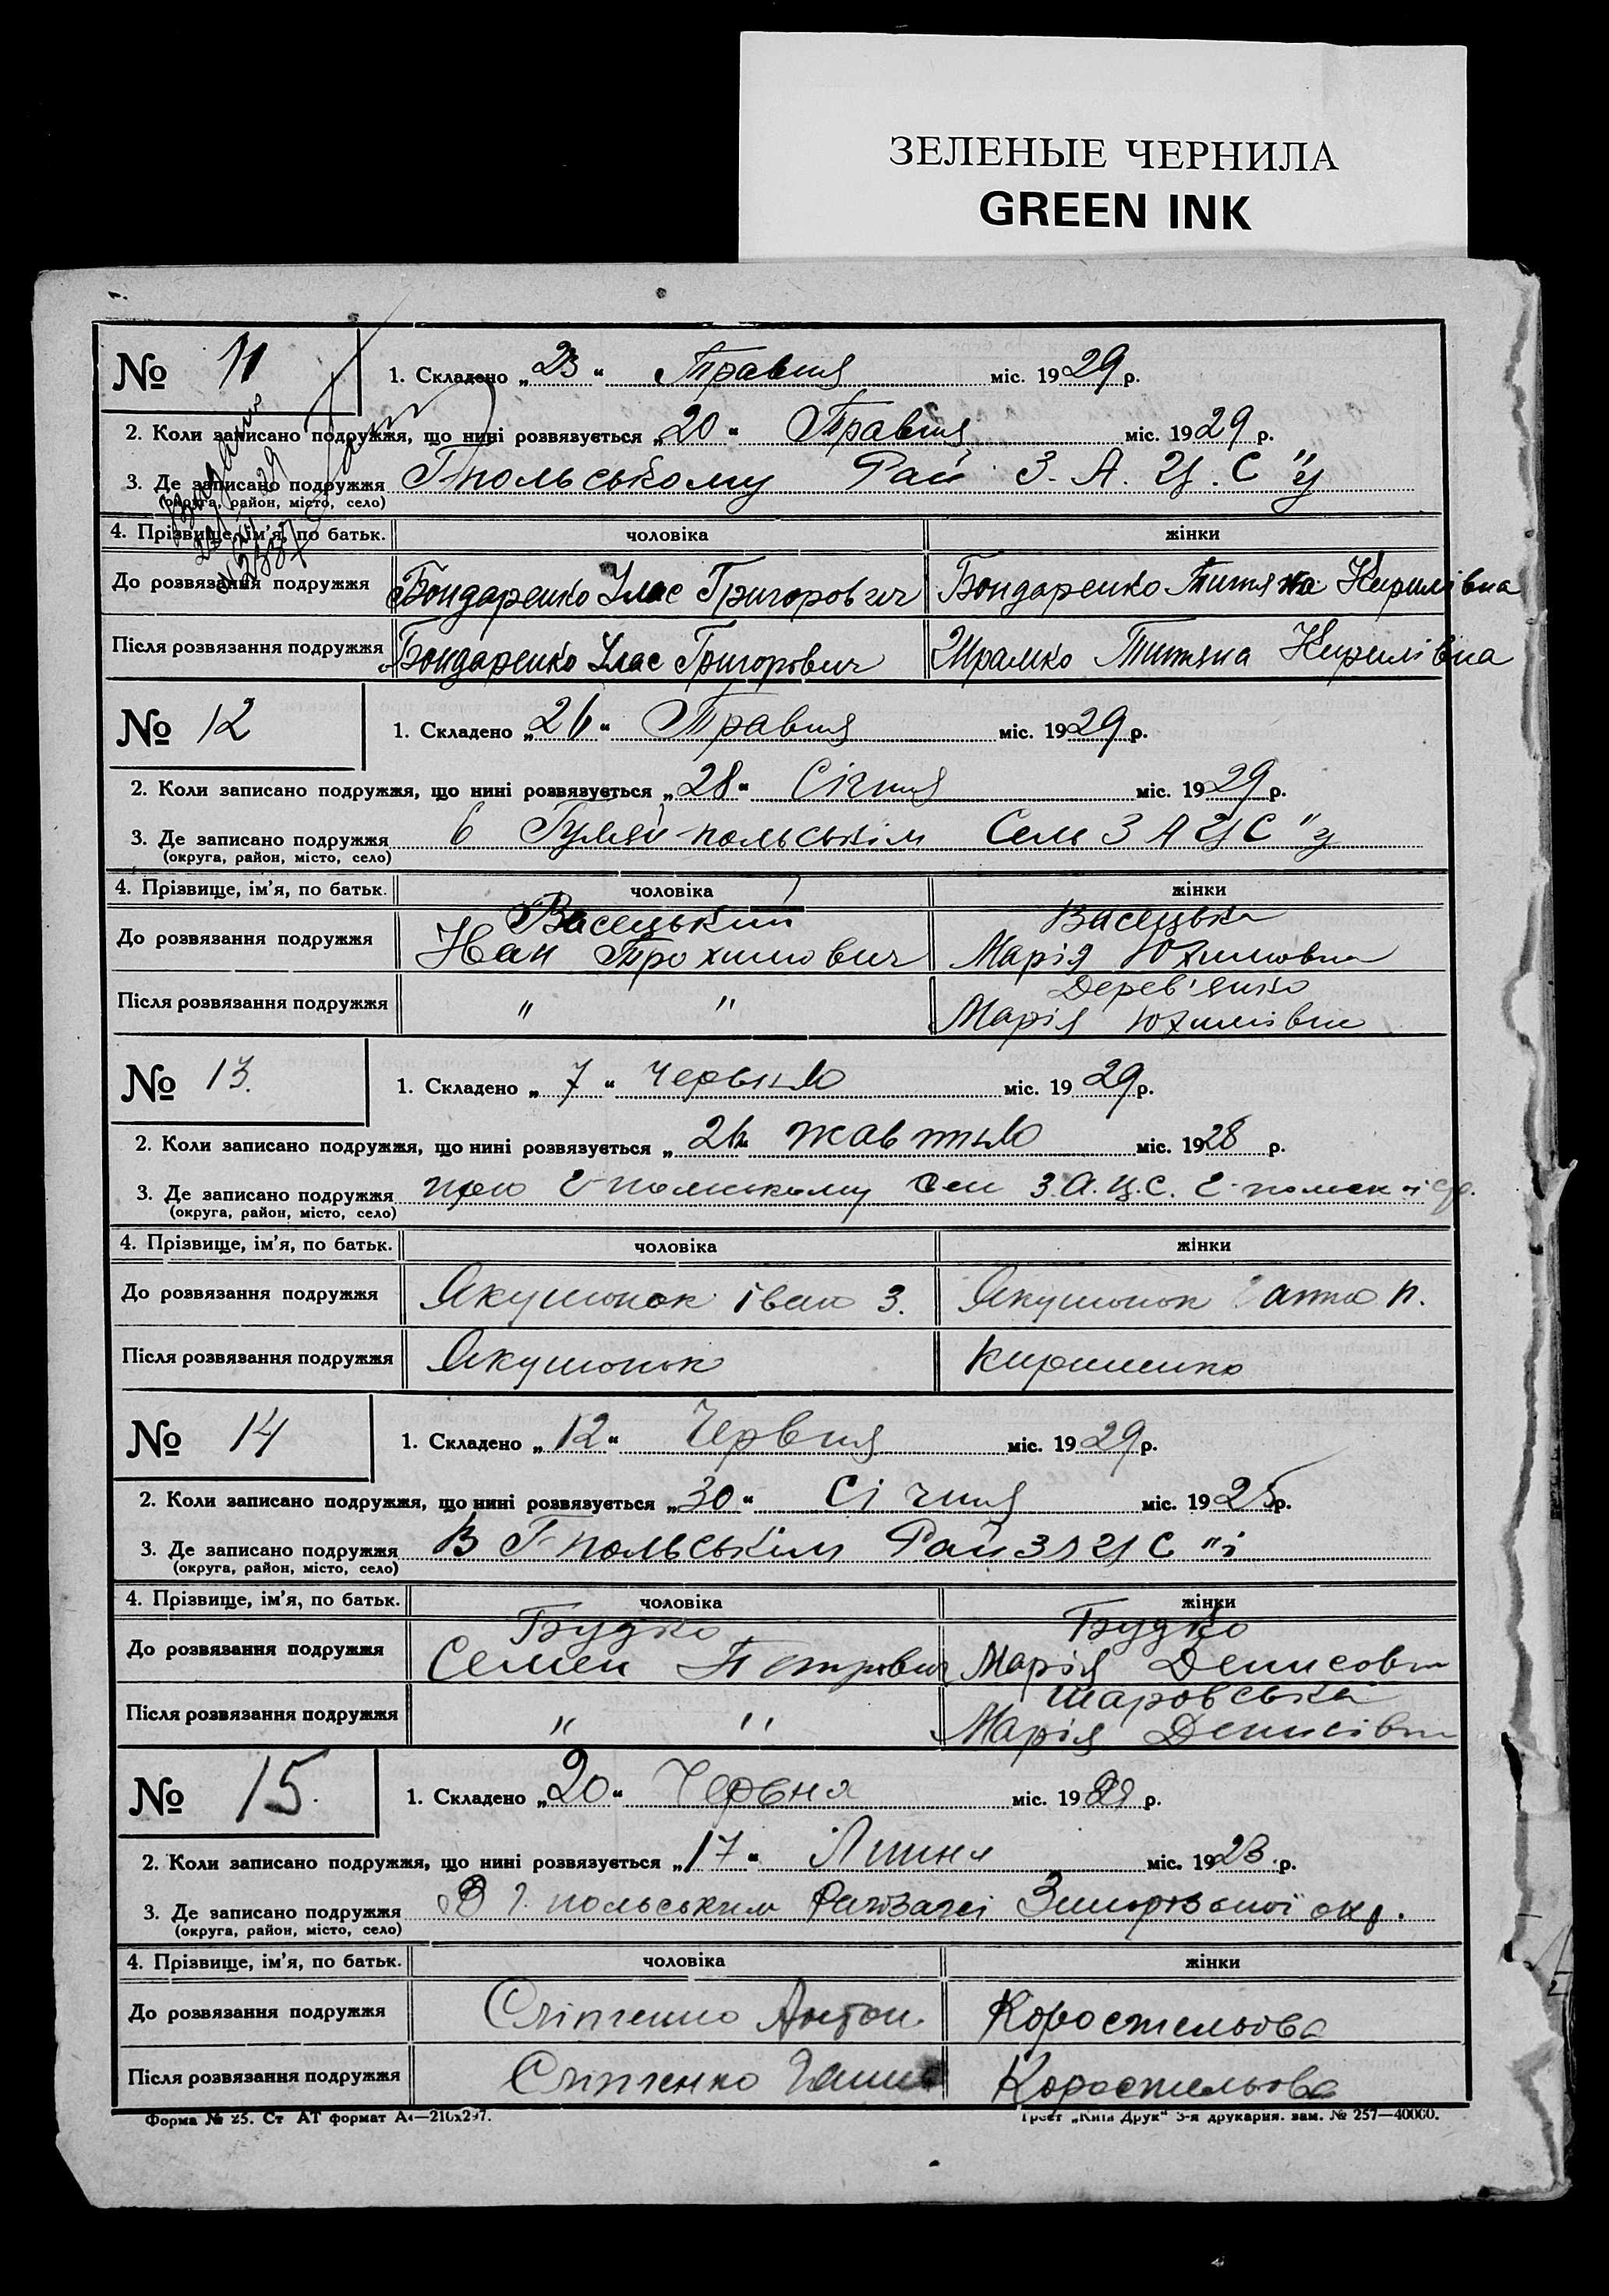 ЗЕЛЕНЫЕ ЧЕРНИЛА
GREEN INK
№ 11
1. Складено „23“ Травня міс. 1929 р.
2. Коли записано подружжя, що нині розвязується „20“ Травня міс. 1929 р.
3. Де записано подружжя Г-польському Рай З. А. Ц. С "у
(округа, район, місто, село)
4. Прізвище, ім'я, по батьк. чоловіка жінки
До розвязання подружжя Бондаренко Улас Григорович Бондаренко Титяна Кирилівна
Після розвязання подружжя Бондаренко Улас Григорович Шрамко Титяна Кирилівна
№ 12
1. Складено „26“ Травня міс. 1929 р.
2. Коли записано подружжя, що нині розвязується „28“ Січня міс. 1929 р.
3. Де записано подружжя в Гуляй-польськім Сель ЗАЦС "у
(округа, район, місто, село)
4. Прізвище, ім'я, по батьк. чоловіка жінки
Васецький Васецька
До розвязання подружжя Трохимович Марія Юхимовна
Дерев'янко
Після розвязання подружжя " " Марія Юхимівна
№ 13.
1. Складено „7“ червню міс. 1929 р.
2. Коли записано подружжя, що нині розвязується „26“ жавтню міс. 1928 р.
3. Де записано подружжя З.А.Ц.С.
(округа, район, місто, село)
4. Прізвище, ім'я, по батьк. чоловіка жінки
До розвязання подружжя Якушонок іван З. Якушонок ганна п.
Після розвязання подружжя Якушонок Кириленко
№ 14
1. Складено „12“ Червня міс. 1929 р.
2. Коли записано подружжя, що нині розвязується „30“ Січня міс. 1925 р.
3. Де записано подружжя В Г-польськім Рай ЗАЦС "і
(округа, район, місто, село)
4. Прізвище, ім'я, по батьк. чоловіка жінки
Будко Будко
До розвязання подружжя Семен Петрович Марія Денисовна
Шаровська
Після розвязання подружжя " " Марія Денисівна
№ 15.
1. Складено „20“ Червня міс. 1929 р.
2. Коли записано подружжя, що нині розвязується „17“ Липня міс. 1923 р.
3. Де записано подружжя В Г. польським окр.
(округа, район, місто, село)
4. Прізвище, ім'я, по батьк. чоловіка жінки
До розвязання подружжя Сліпченко Антон. Коростельова
Після розвязання подружжя Сліпченко Коростельова
Форма № 25. Ст АТ формат А4—210х297.
Трест „Київ Друк“ 3-я друкарня. зам. № 257—40000.